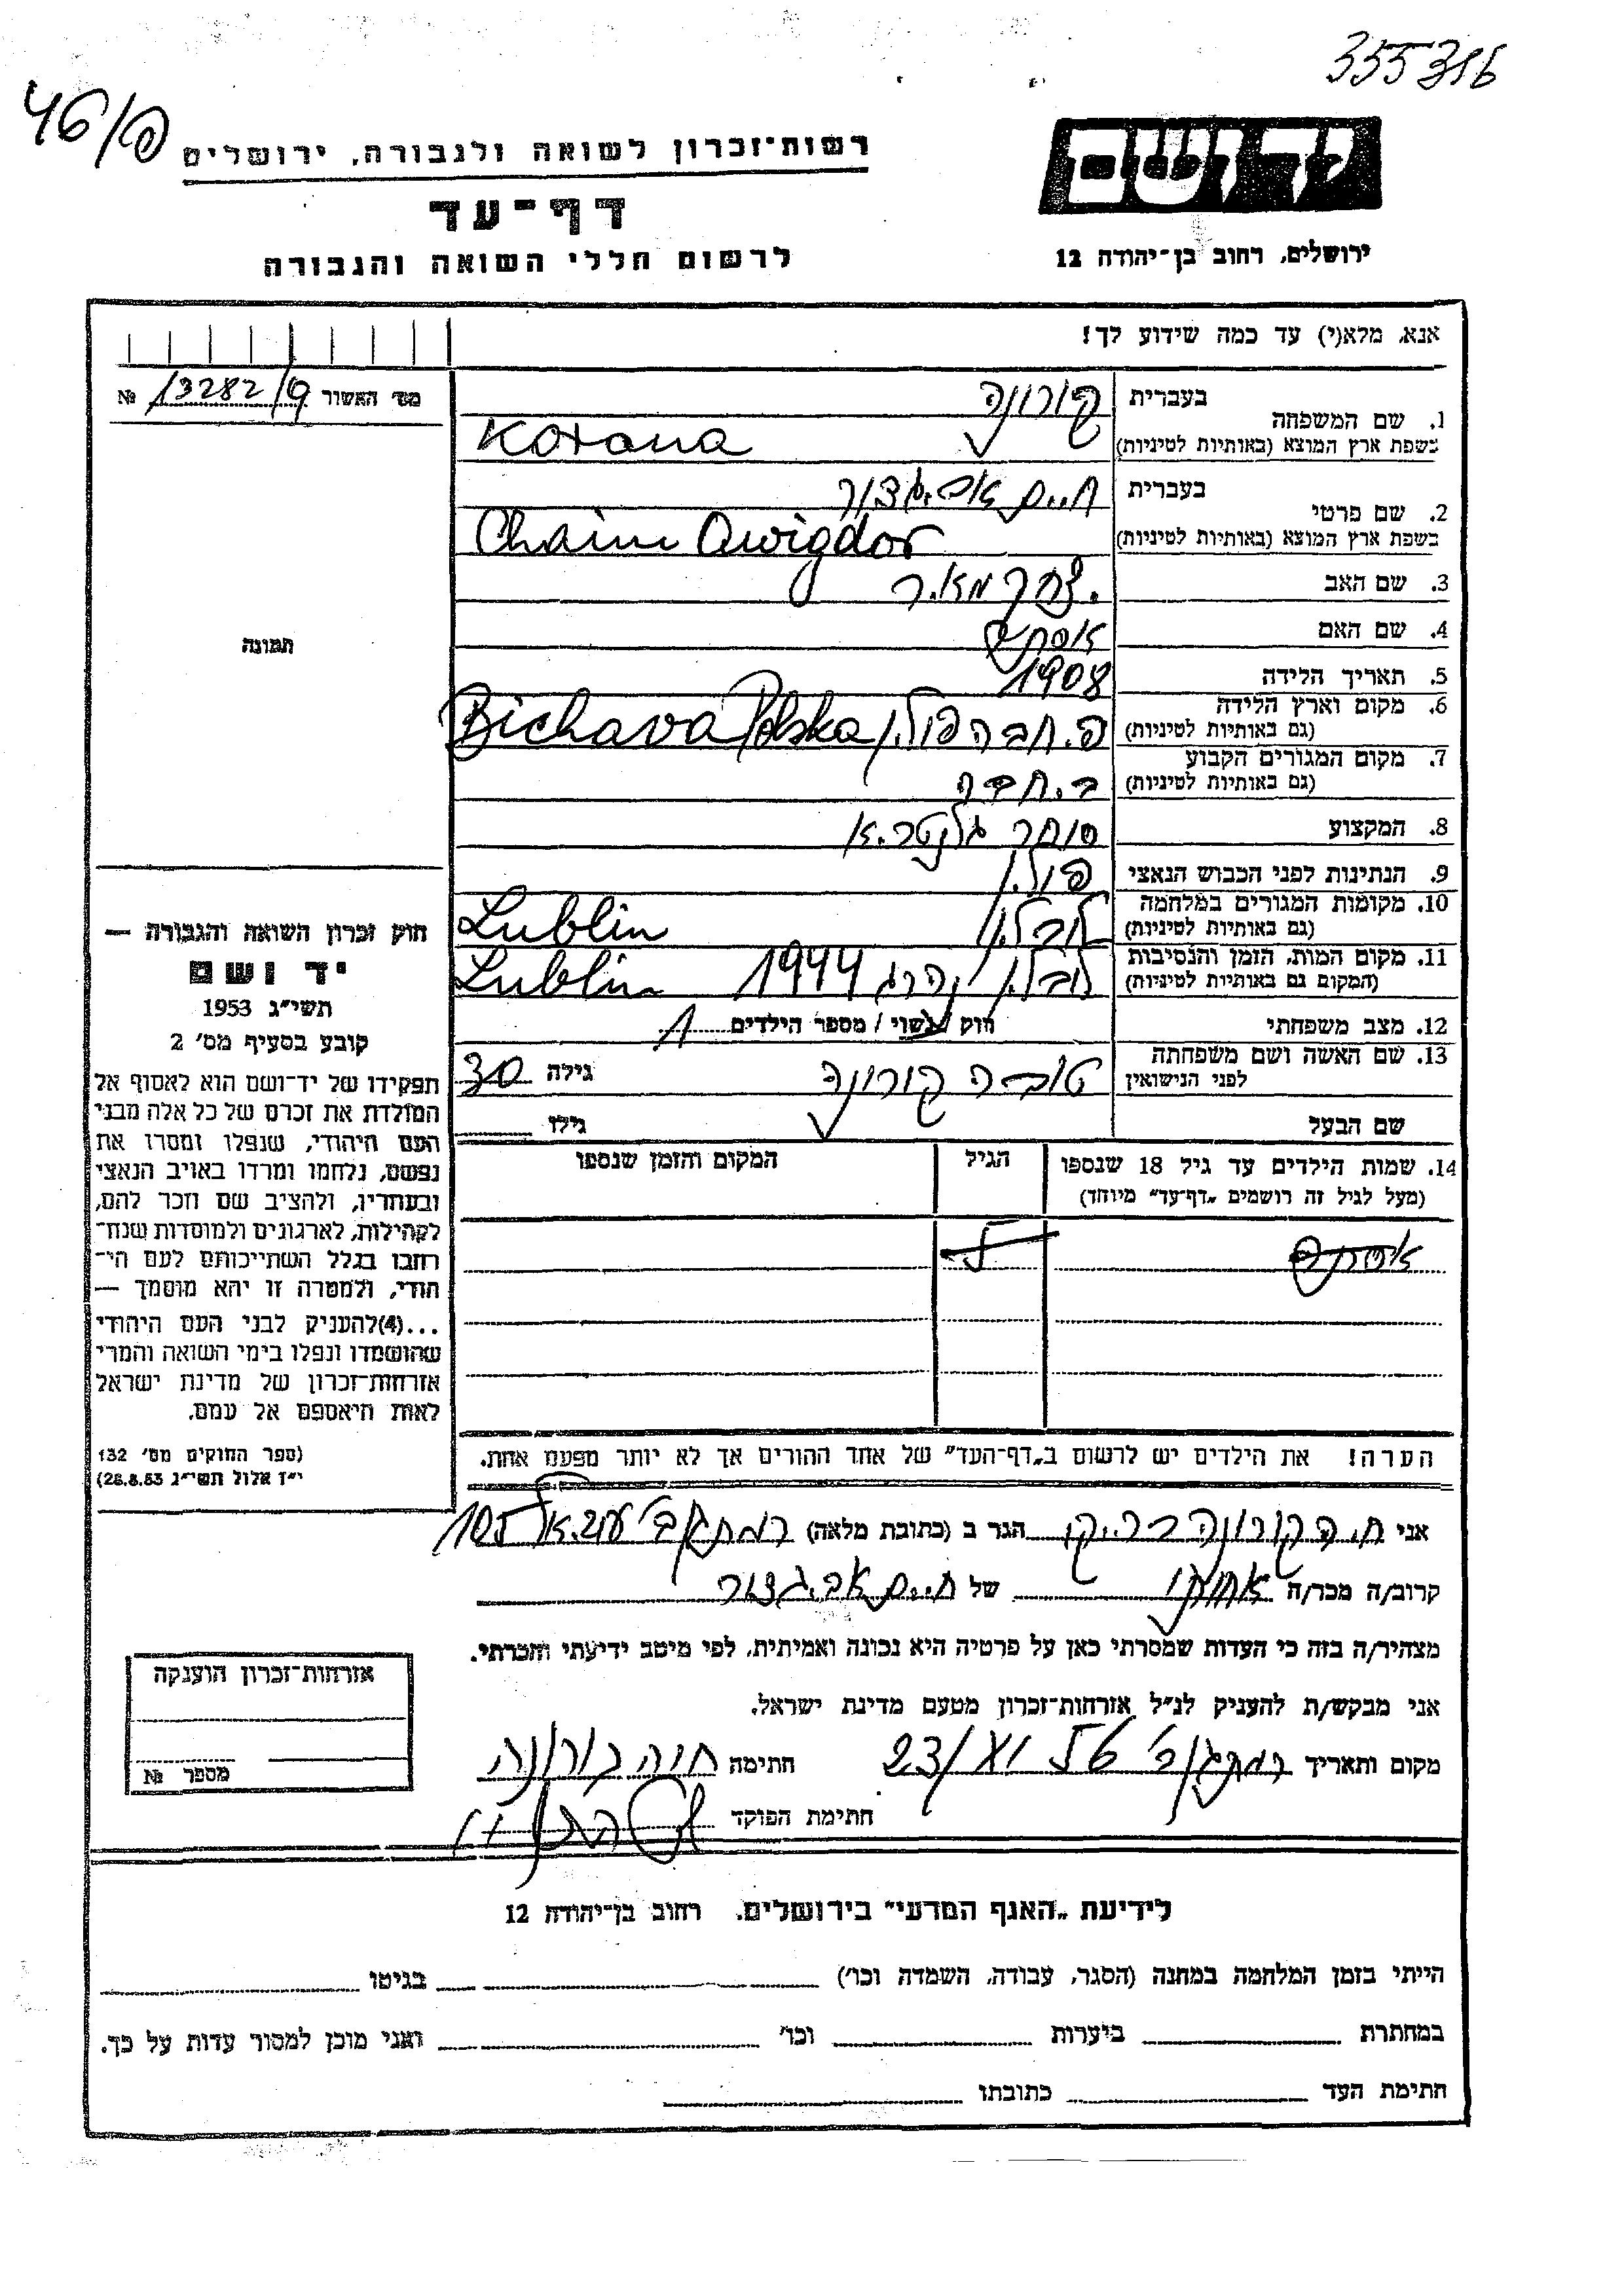 355316
46/פ
יד ושם
רשות־זכרון לשואה ולגבורה, ירושלים
דף־עד
לרשום חללי השואה והגבורה
ירושלים, רחוב בן־יהודה 12
אנא, מלא(י) עד כמה שידוע לך!
מס' האשור 13282/פ №
1. שם המשפחה
בעברית קורונה
בשפת ארץ המוצא (באותיות לטיניות) Korona
2. שם פרטי
בעברית חיים אביגדור
בשפת ארץ המוצא (באותיות לטיניות) Chaim Awigdor
3. שם האב יצחק מאיר
4. שם האם אסתר
תמונה
5. תאריך הלידה 1908
6. מקום וארץ הלידה
(גם באותיות לטיניות) ביחבה פולין Bichava Polska
7. מקום המגורים הקבוע
(גם באותיות לטיניות) ביחבה
8. המקצוע סוחר גלנטריא
9. הנתינות לפני הכבוש הנאצי פולין
10. מקומות המגורים במלחמה
(גם באותיות לטיניות) לובלין Lublin
11. מקום המות, הזמן והנסיבות
(המקום גם באותיות לטיניות) לובלין נהרג 1944 Lublin
12. מצב משפחתי רווק / נשוי / מספר הילדים 1
13. שם האשה ושם משפחתה
לפני הנישואין טובה קורונה גילה 30
שם הבעל גילו
14. שמות הילדים עד גיל 18 שנספו הגיל המקום והזמן שנספו
(מעל לגיל זה רושמים „דף־עד” מיוחד)
אסתר
הערה! את הילדים יש לרשום ב„דף־העד” של אחד ההורים אך לא יותר מפעם אחת.
חוק זכרון השואה והגבורה —
יד ושם
תשי״ג 1953
קובע בסעיף מס' 2
תפקידו של יד־ושם הוא לאסוף אל
המולדת את זכרם של כל אלה מבני
העם היהודי, שנפלו ומסרו את
נפשם, נלחמו ומרדו באויב הנאצי
ובעוזריו, ולהציב שם וזכר להם,
לקהילות, לארגונים ולמוסדות שנח־
רבו בגלל השתייכותם לעם הי־
הודי, ולמטרה זו יהא מוסמך —
...(4) להעניק לבני העם היהודי
שהושמדו ונפלו בימי השואה והמרי
אזרחות־זכרון של מדינת ישראל
לאות היאספם אל עמם.
(ספר החוקים מס' 132
י״ז אלול תשי״ג 28.8.53)
אני חיה קורונה הגר ב (כתובת מלאה) רמת גן 105
קרוב/ה מכר/ה של חיים אביגדור
מצהיר/ה בזה כי העדות שמסרתי כאן על פרטיה היא נכונה ואמיתית, לפי מיטב ידיעתי והכרתי.
אני מבקש/ת להעניק לנ״ל אזרחות־זכרון מטעם מדינת ישראל.
מקום ותאריך 23/ חתימה חיה קורונה
חתימת הפוקד
אזרחות־זכרון הוענקה
מספר №
לידיעת „האגף המדעי” בירושלים, רחוב בן־יהודה 12
הייתי בזמן המלחמה במחנה (הסגר, עבודה, השמדה וכו') בגיטו
במחתרת ביערות וכו' ואני מוכן למסור עדות על כך.
חתימת העד כתובתו